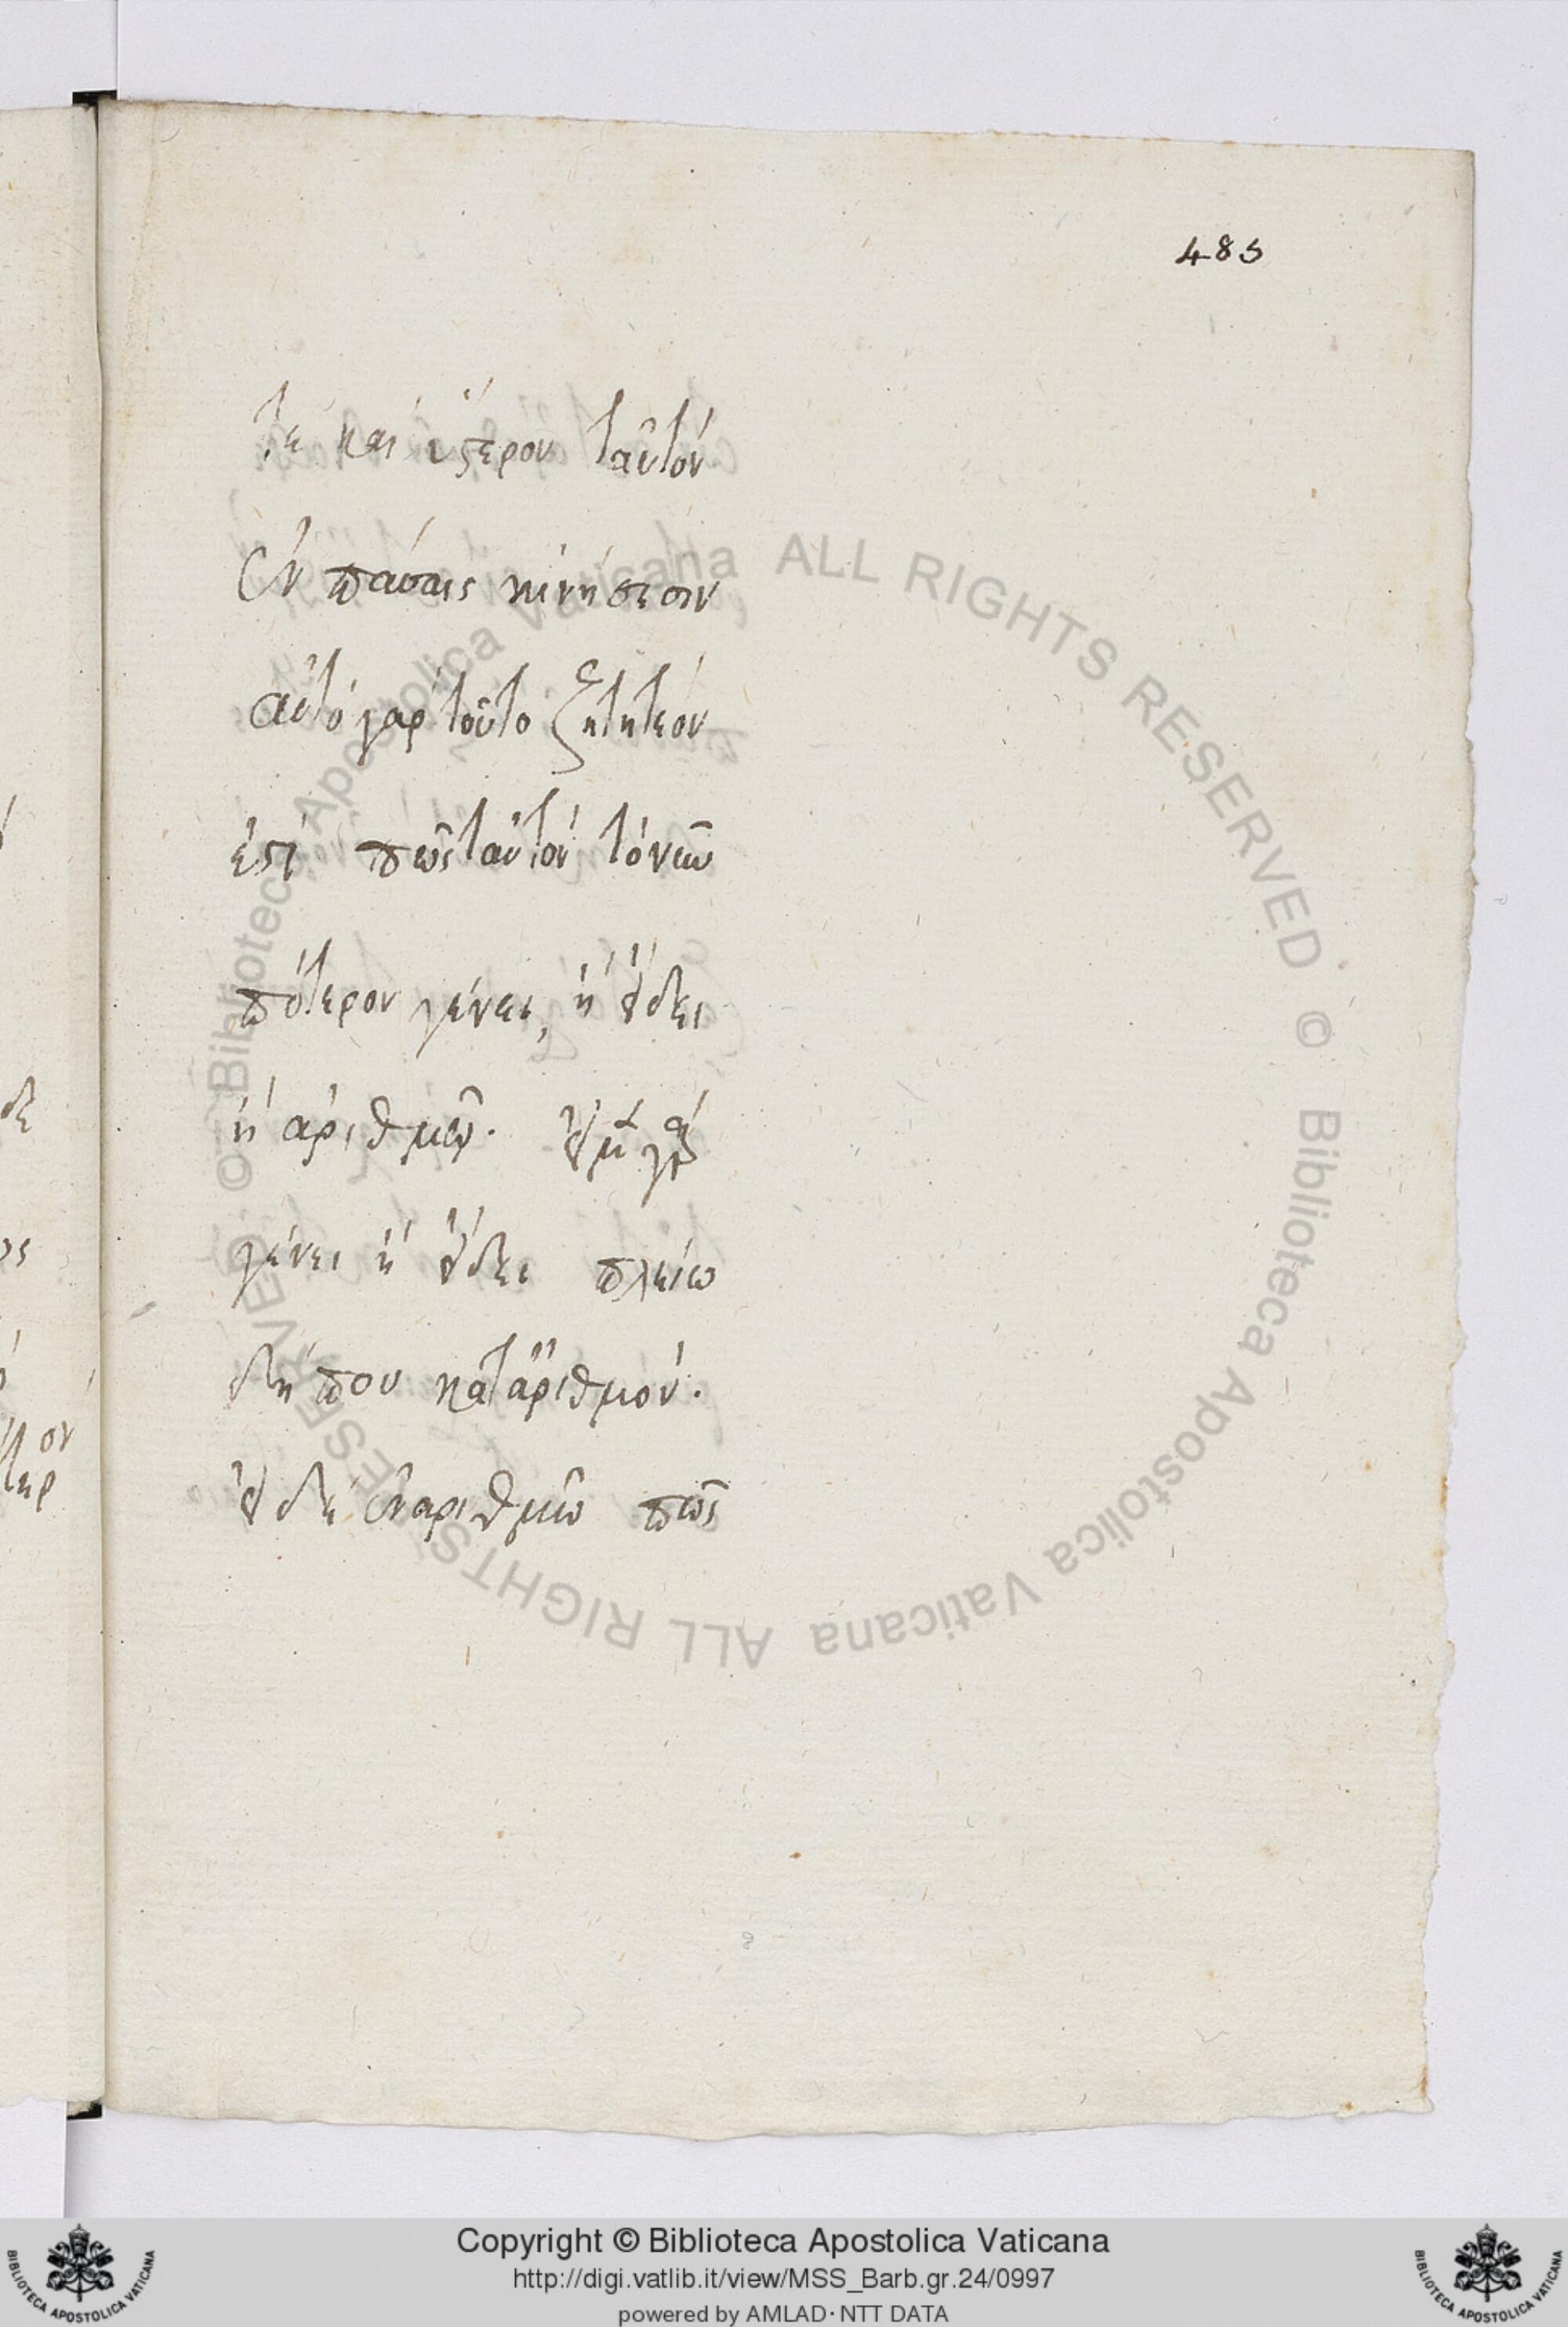 485
τε καὶ ὕστερον ταὐτὸν
ἐν πάσαις κινήσεσιν
αὐτὸ γὰρ τοῦτο ζητητέον
ἐστὶ πῶς ταὐτὸν τὸ νῦν
πότερον γένει, ἢ εἴδει
ἢ ἀριθμῷ. εἰ μὲν γὰρ
γένει ἢ εἴδει πλείω
δήπου κατ' ἀριθμόν.
εἰ δὲ ἓν ἀριθμῷ πῶς
© Biblioteca Apostolica Vaticana ALL RIGHTS RESERVED © Biblioteca Apostolica Vaticana ALL RIGHTS RESERVED
Copyright © Biblioteca Apostolica Vaticana
http://digi.vatlib.it/view/MSS_Barb.gr.24/0997
powered by AMLAD · NTT DATA
BIBLIOTECA APOSTOLICA VATICANA
BIBLIOTECA APOSTOLICA VATICANA